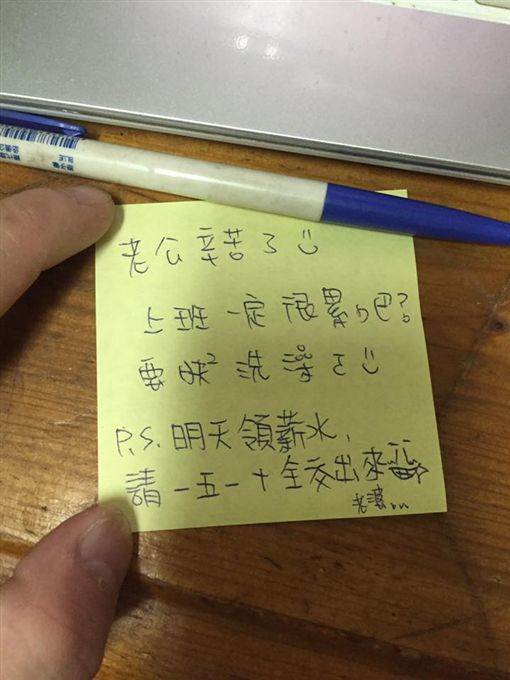 老公辛苦了
上班一定很累ㄅ吧?
要快洗澡ㄛ
P.S. 明天領薪水,
請一五一十全交出來
老婆...